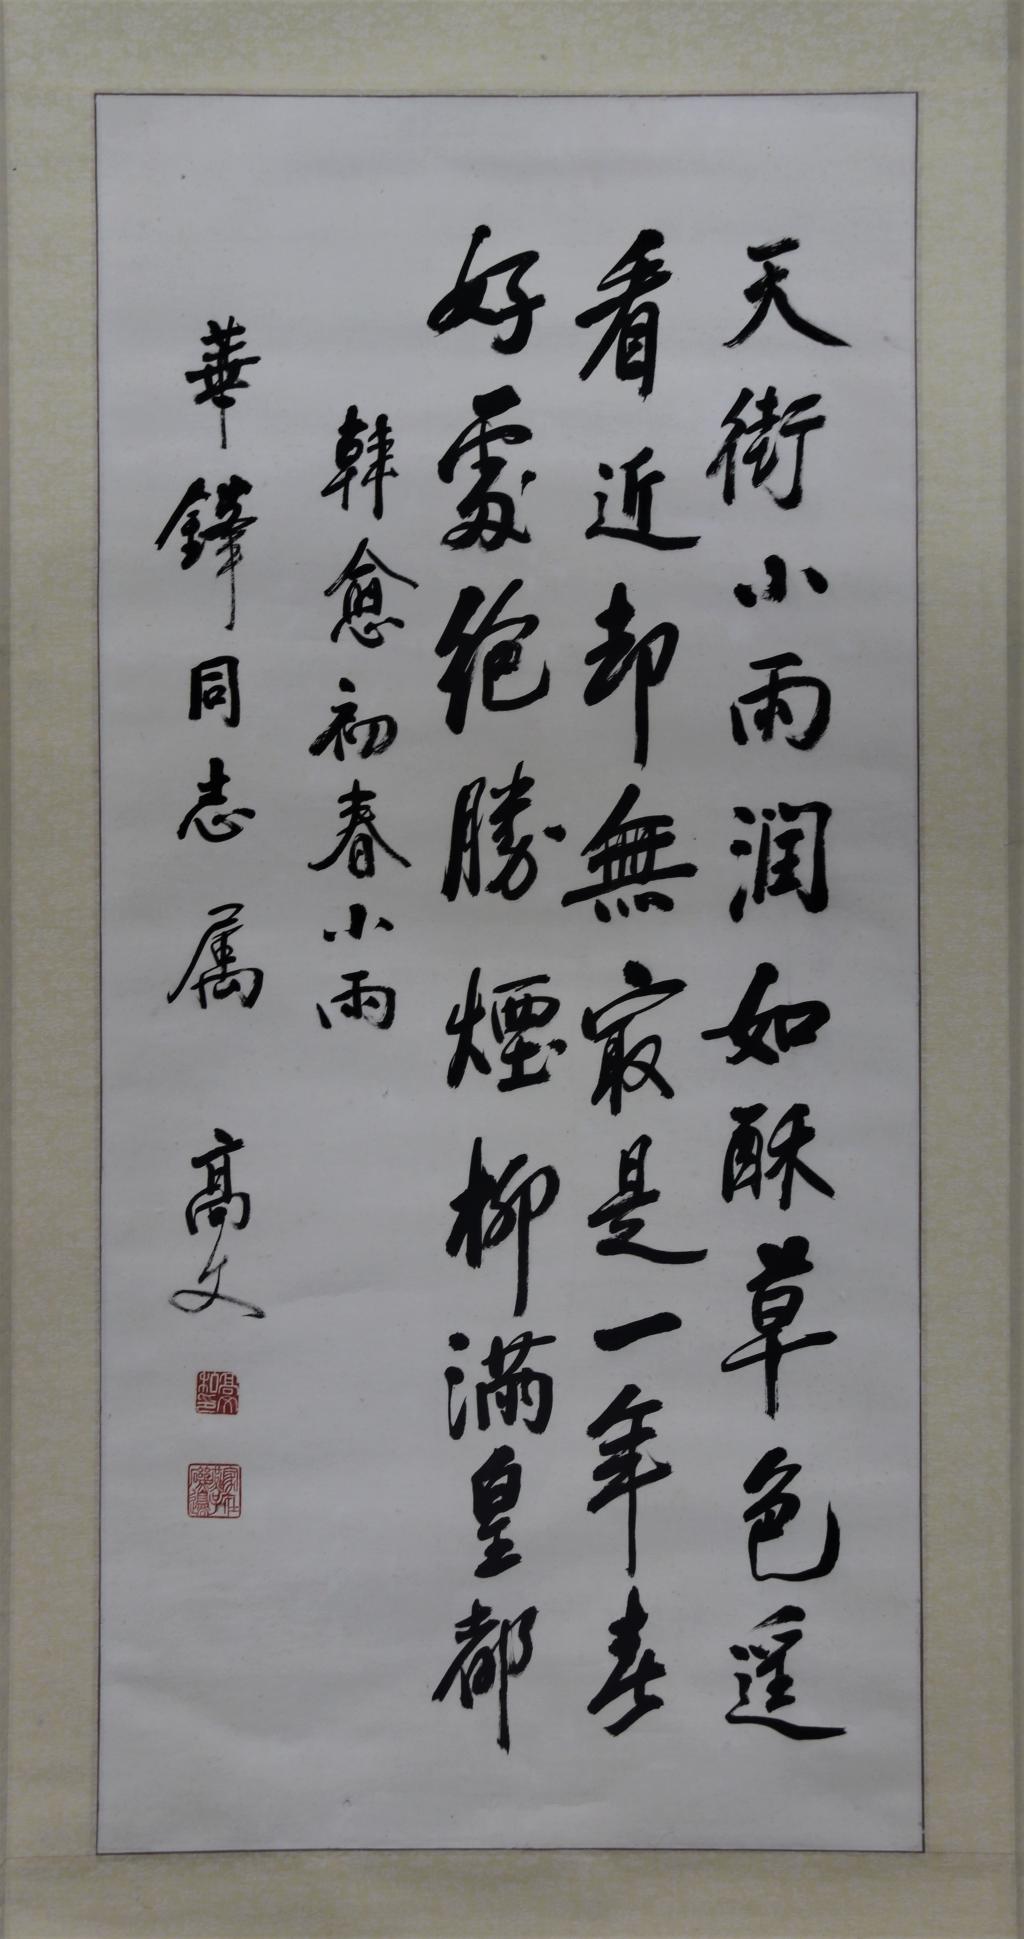 天街小雨润如酥草色遥
看近却無冣是一年春
好處絶勝煙柳滿皇都
韓愈初春小雨
華鋒同志属 高文